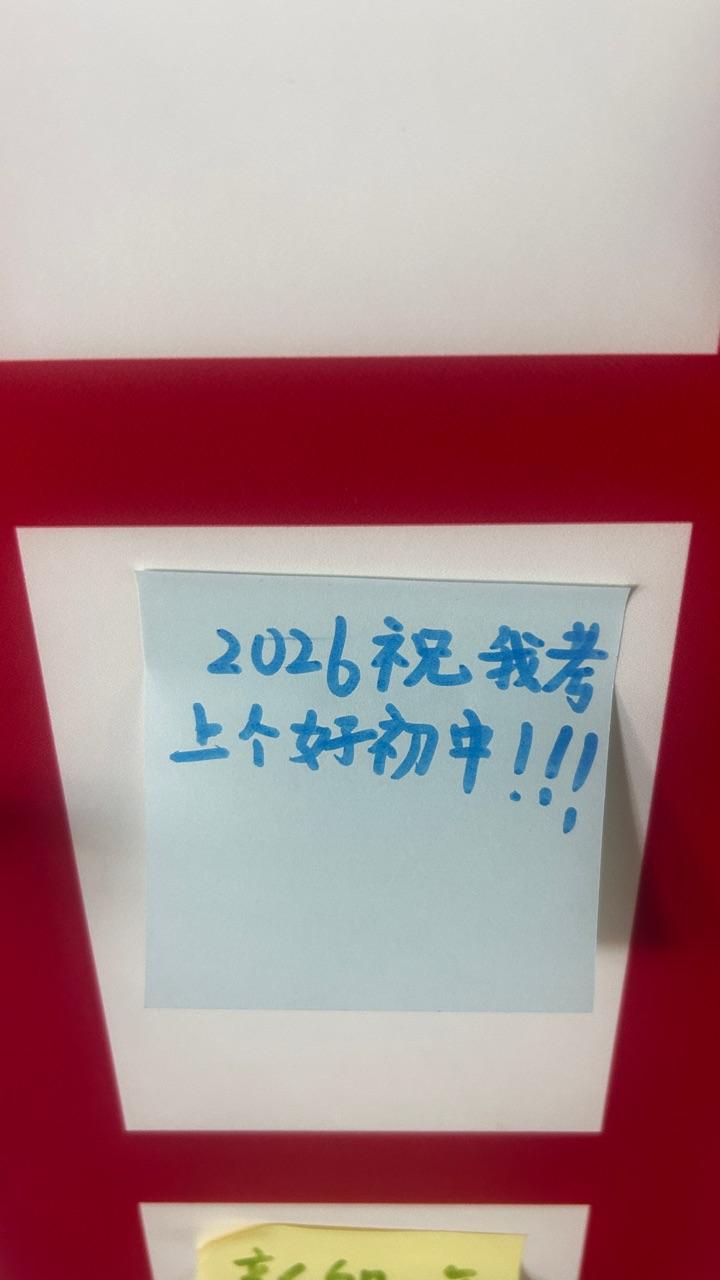 2026祝我考
上个好初中!!!